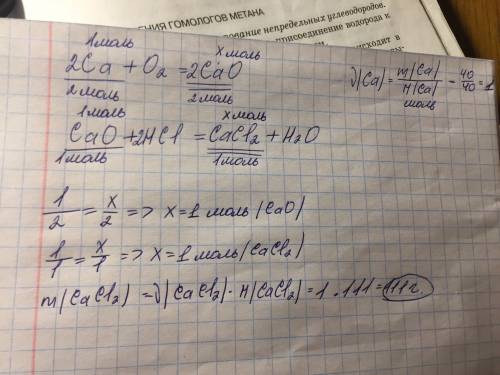 ЕНИЯ ГОМОЛОГОВ МЕТАНА
ование непредельных углеводородов.
присоединение водорода к
исходит в
1 моль х моль
2Ca + O₂ = 2CaO
2 моль 2 моль
ν(Ca) = m(Ca)/M(Ca) = 40/40 = 1 моль
1 моль х моль
CaO + 2HCl = CaCl₂ + H₂O
1 моль 1 моль
1/2 = x/2 => x = 1 моль (CaO)
1/1 = x/1 => x = 1 моль (CaCl₂)
m(CaCl₂) = ν(CaCl₂) · M(CaCl₂) = 1 · 111 = 111 г.